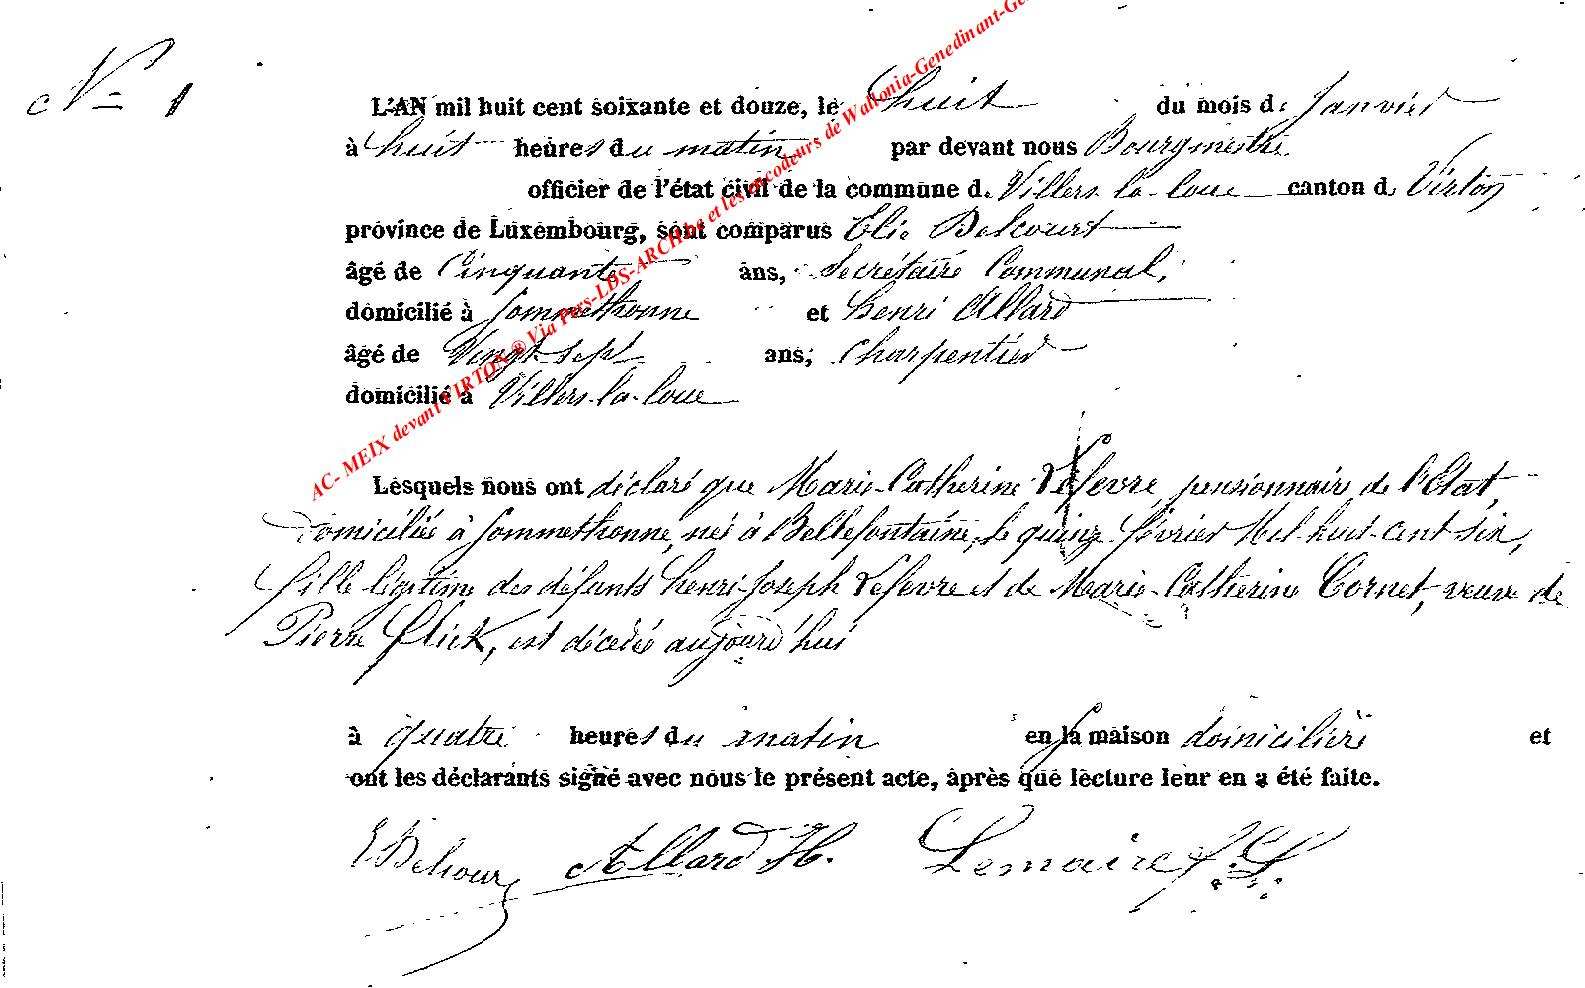 N° 1
L'AN mil huit cent soixante et douze, le huit du mois de Janvier
à huit heures du matin par devant nous Bourgmestre
officier de l'état civil de la commune de Villers-la-loue canton de Virton
province de Luxembourg, sont comparus Elie Delcourt
âgé de Cinquante ans, Secrétaire Communal,
domicilié à Sommethonne et henri Allard
âgé de Vingt sept ans, Charpentier
domicilié à Villers-la-loue
Lesquels nous ont déclaré que Marie-Catherine Lefevre, pensionnaire de l'Etat,
domiciliée à Sommethonne, née à Bellefontaine, le quinze février Mil-huit-cent-six,
fille légitime des défunts henri-Joseph Lefevre et de Marie-Catherine Cornet, veuve de
Pierre Flick, est décédée aujourd'hui
à quatre heures du matin en la maison domicilière et
ont les déclarants signé avec nous le présent acte, après que lecture leur en a été faite.
E Delcour Allard H. Lemaire
AC- MEIX devant VIRTON ® Via Pers-LDS-ARCH.be et les encodeurs de Wallonia-Genedinant-Ge